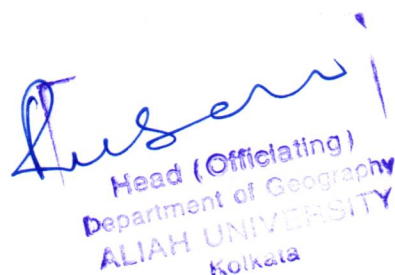 Head (Officiating)
Department of Geography
ALIAH UNIVERSITY
Kolkata